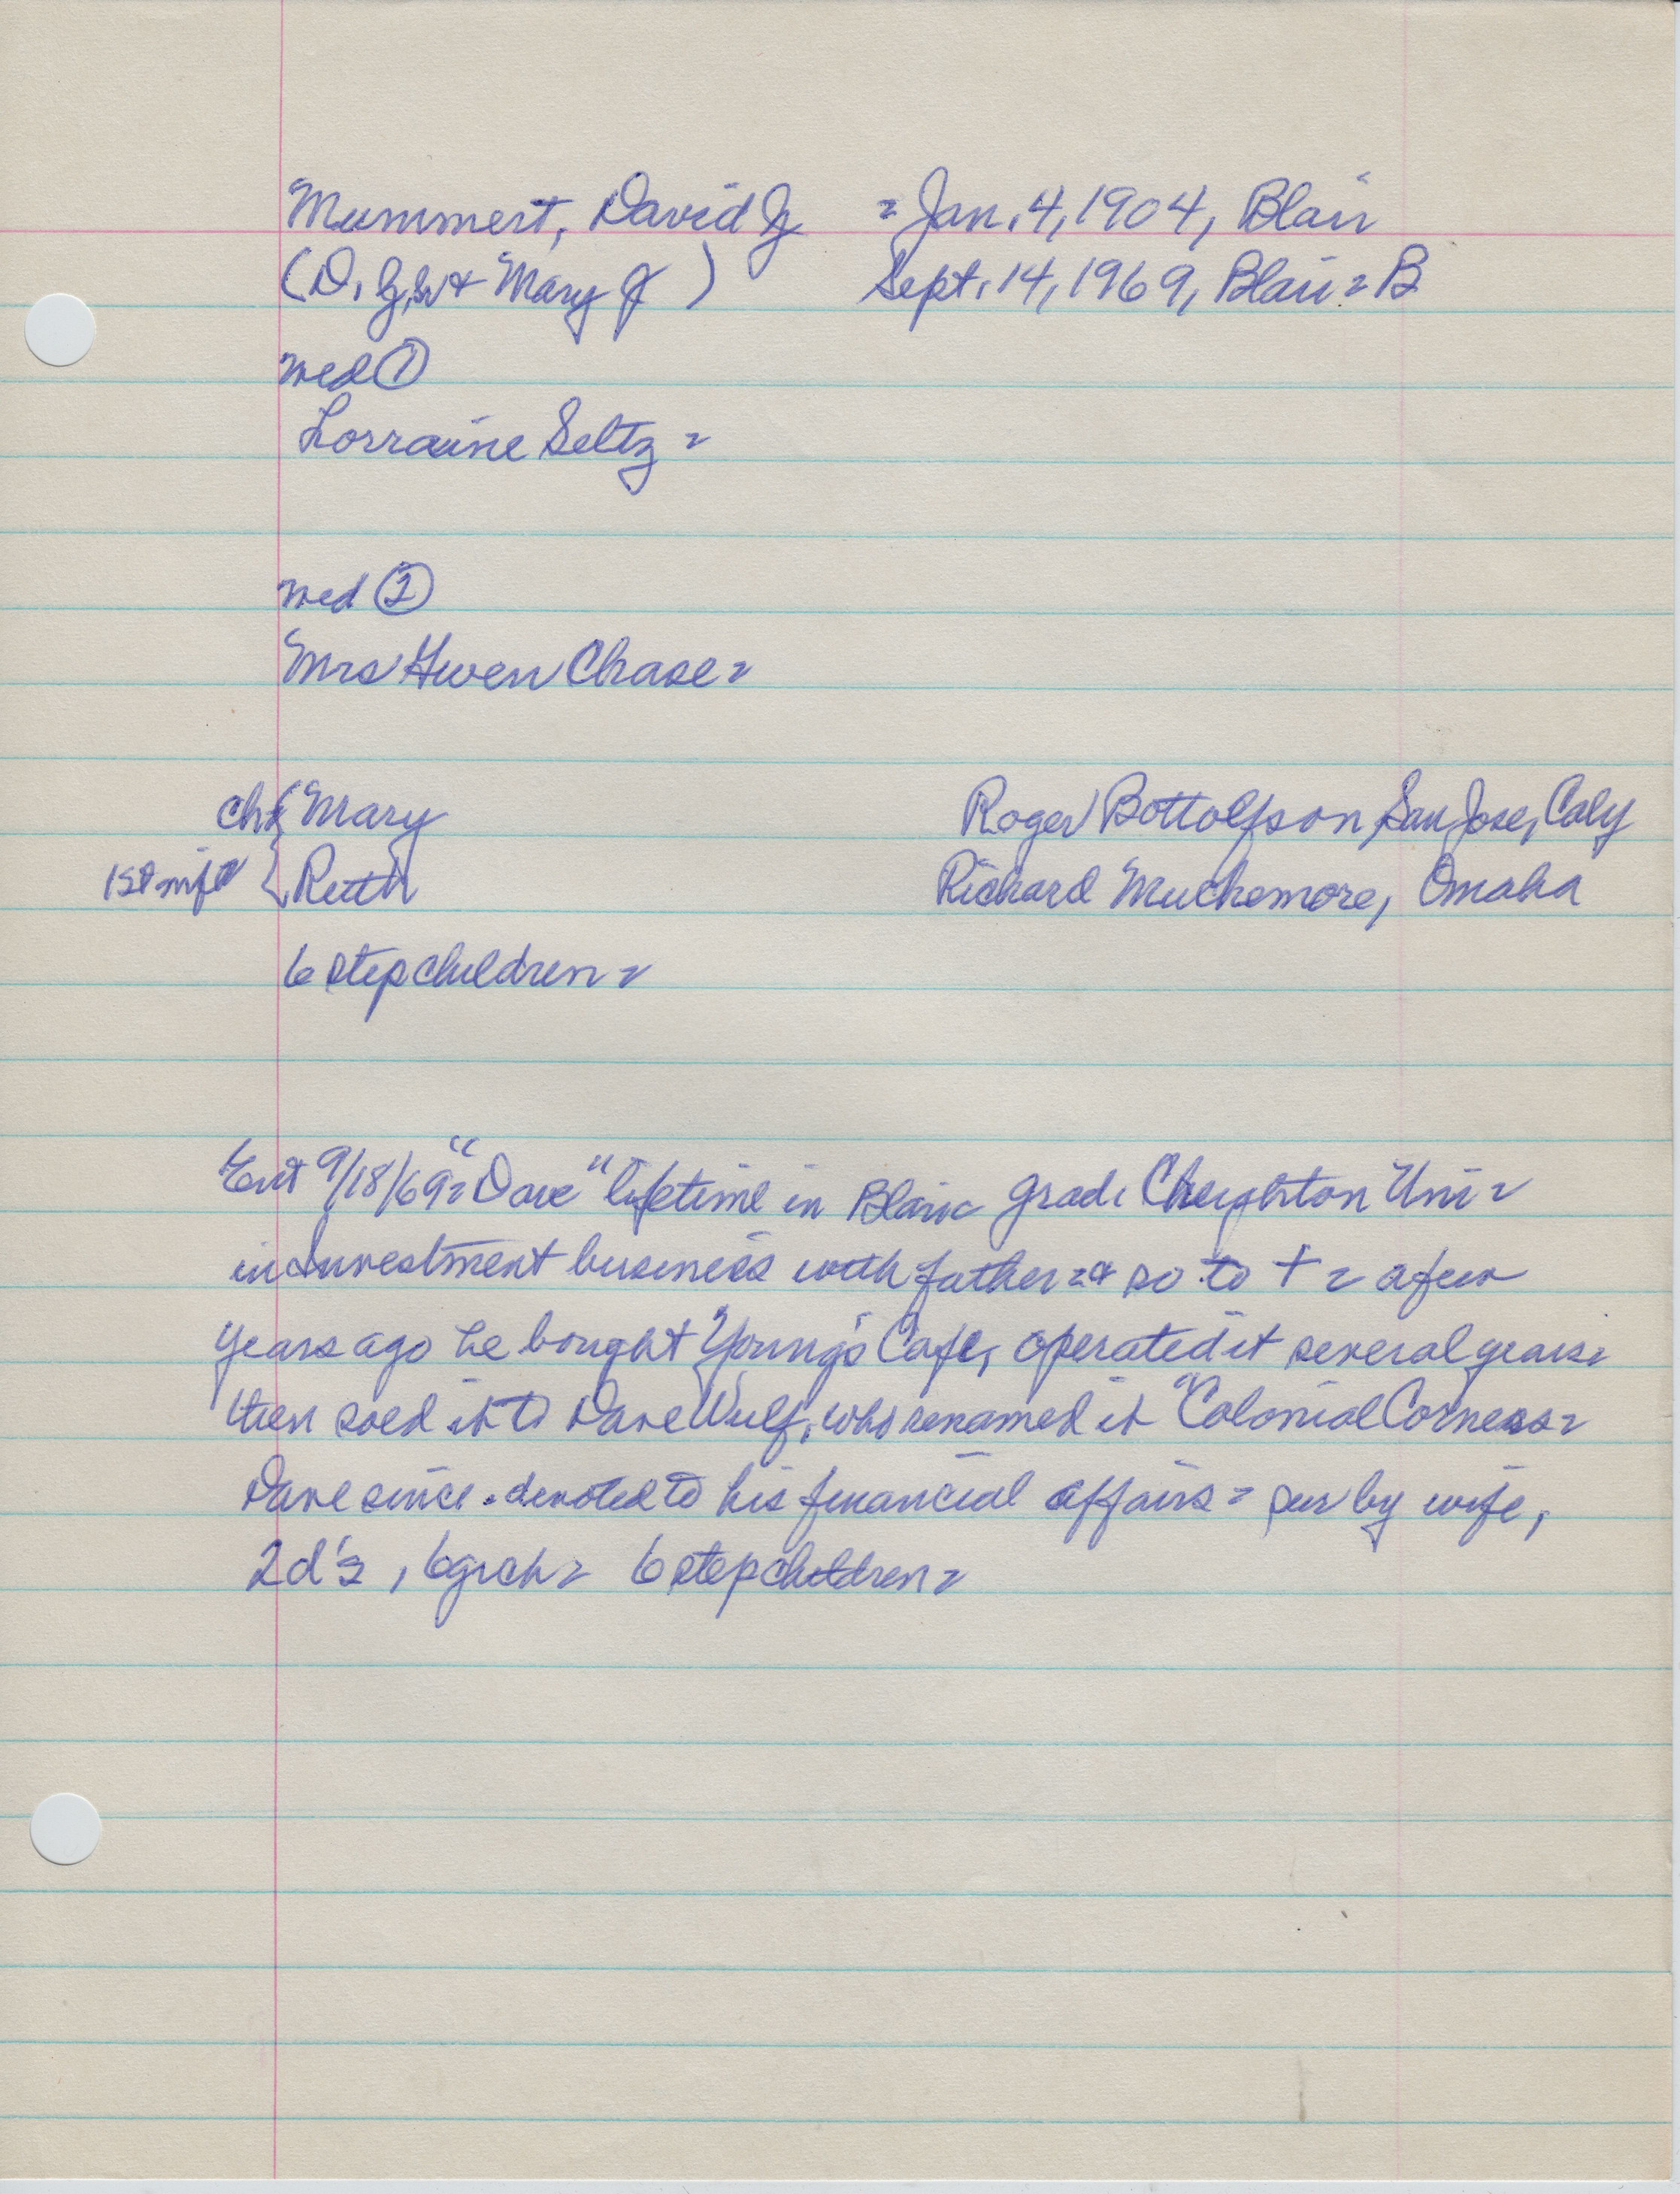 Mummert, David G = Jan. 4, 1904, Blair
(D. G. Sr + Mary J ) Sept. 14, 1969, Blair = B
wed ①
Lorraine Seltz =
wed ②
Mrs Gwen Chase =
ch { Mary Roger Bottolfson San Jose, Calif
1st wife { Ruth Richard Muchemore, Omaha
6 stepchildren =
Ent 9/18/69 = "Dave" lifetime in Blair grad. Creighton Uni =
in Investment business with father = & so to + = a few
years ago he bought Young's Cafe, operated it several years
then sold it to Dave Wulf, who renamed it "Colonial Corners =
Dave since devoted to his financial affairs = sur by wife,
2 d's, 6 grch = 6 stepchildren =